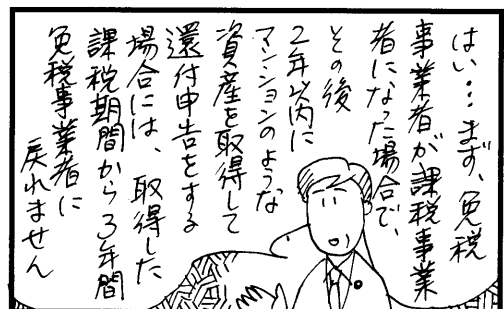 はい…まず、免税
事業者が課税事業
者になった場合で、
その後
2年以内に
マンションのような
資産を取得して
還付申告をする
場合には、取得した
課税期間から3年間
免税事業者に
戻れません